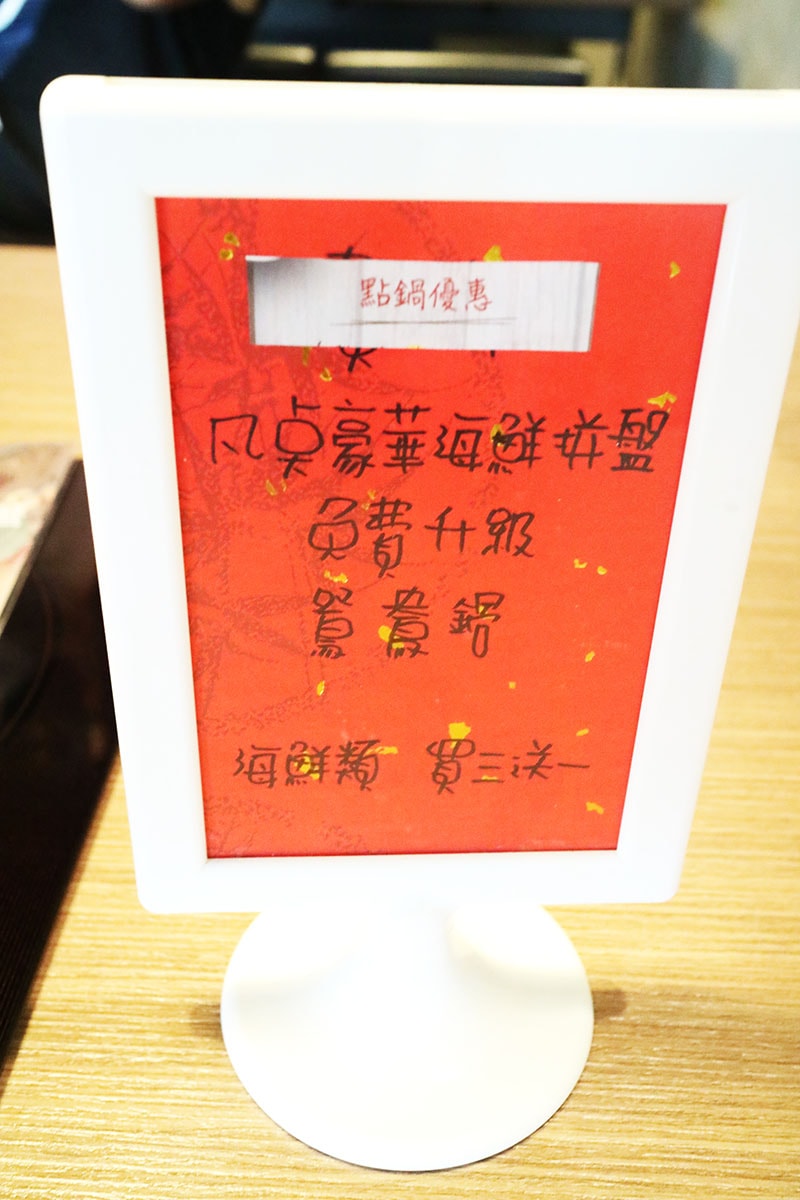 點鍋優惠
凡点豪華海鮮拼盤
免費升級
鴛鴦鍋
海鮮類 買三送一